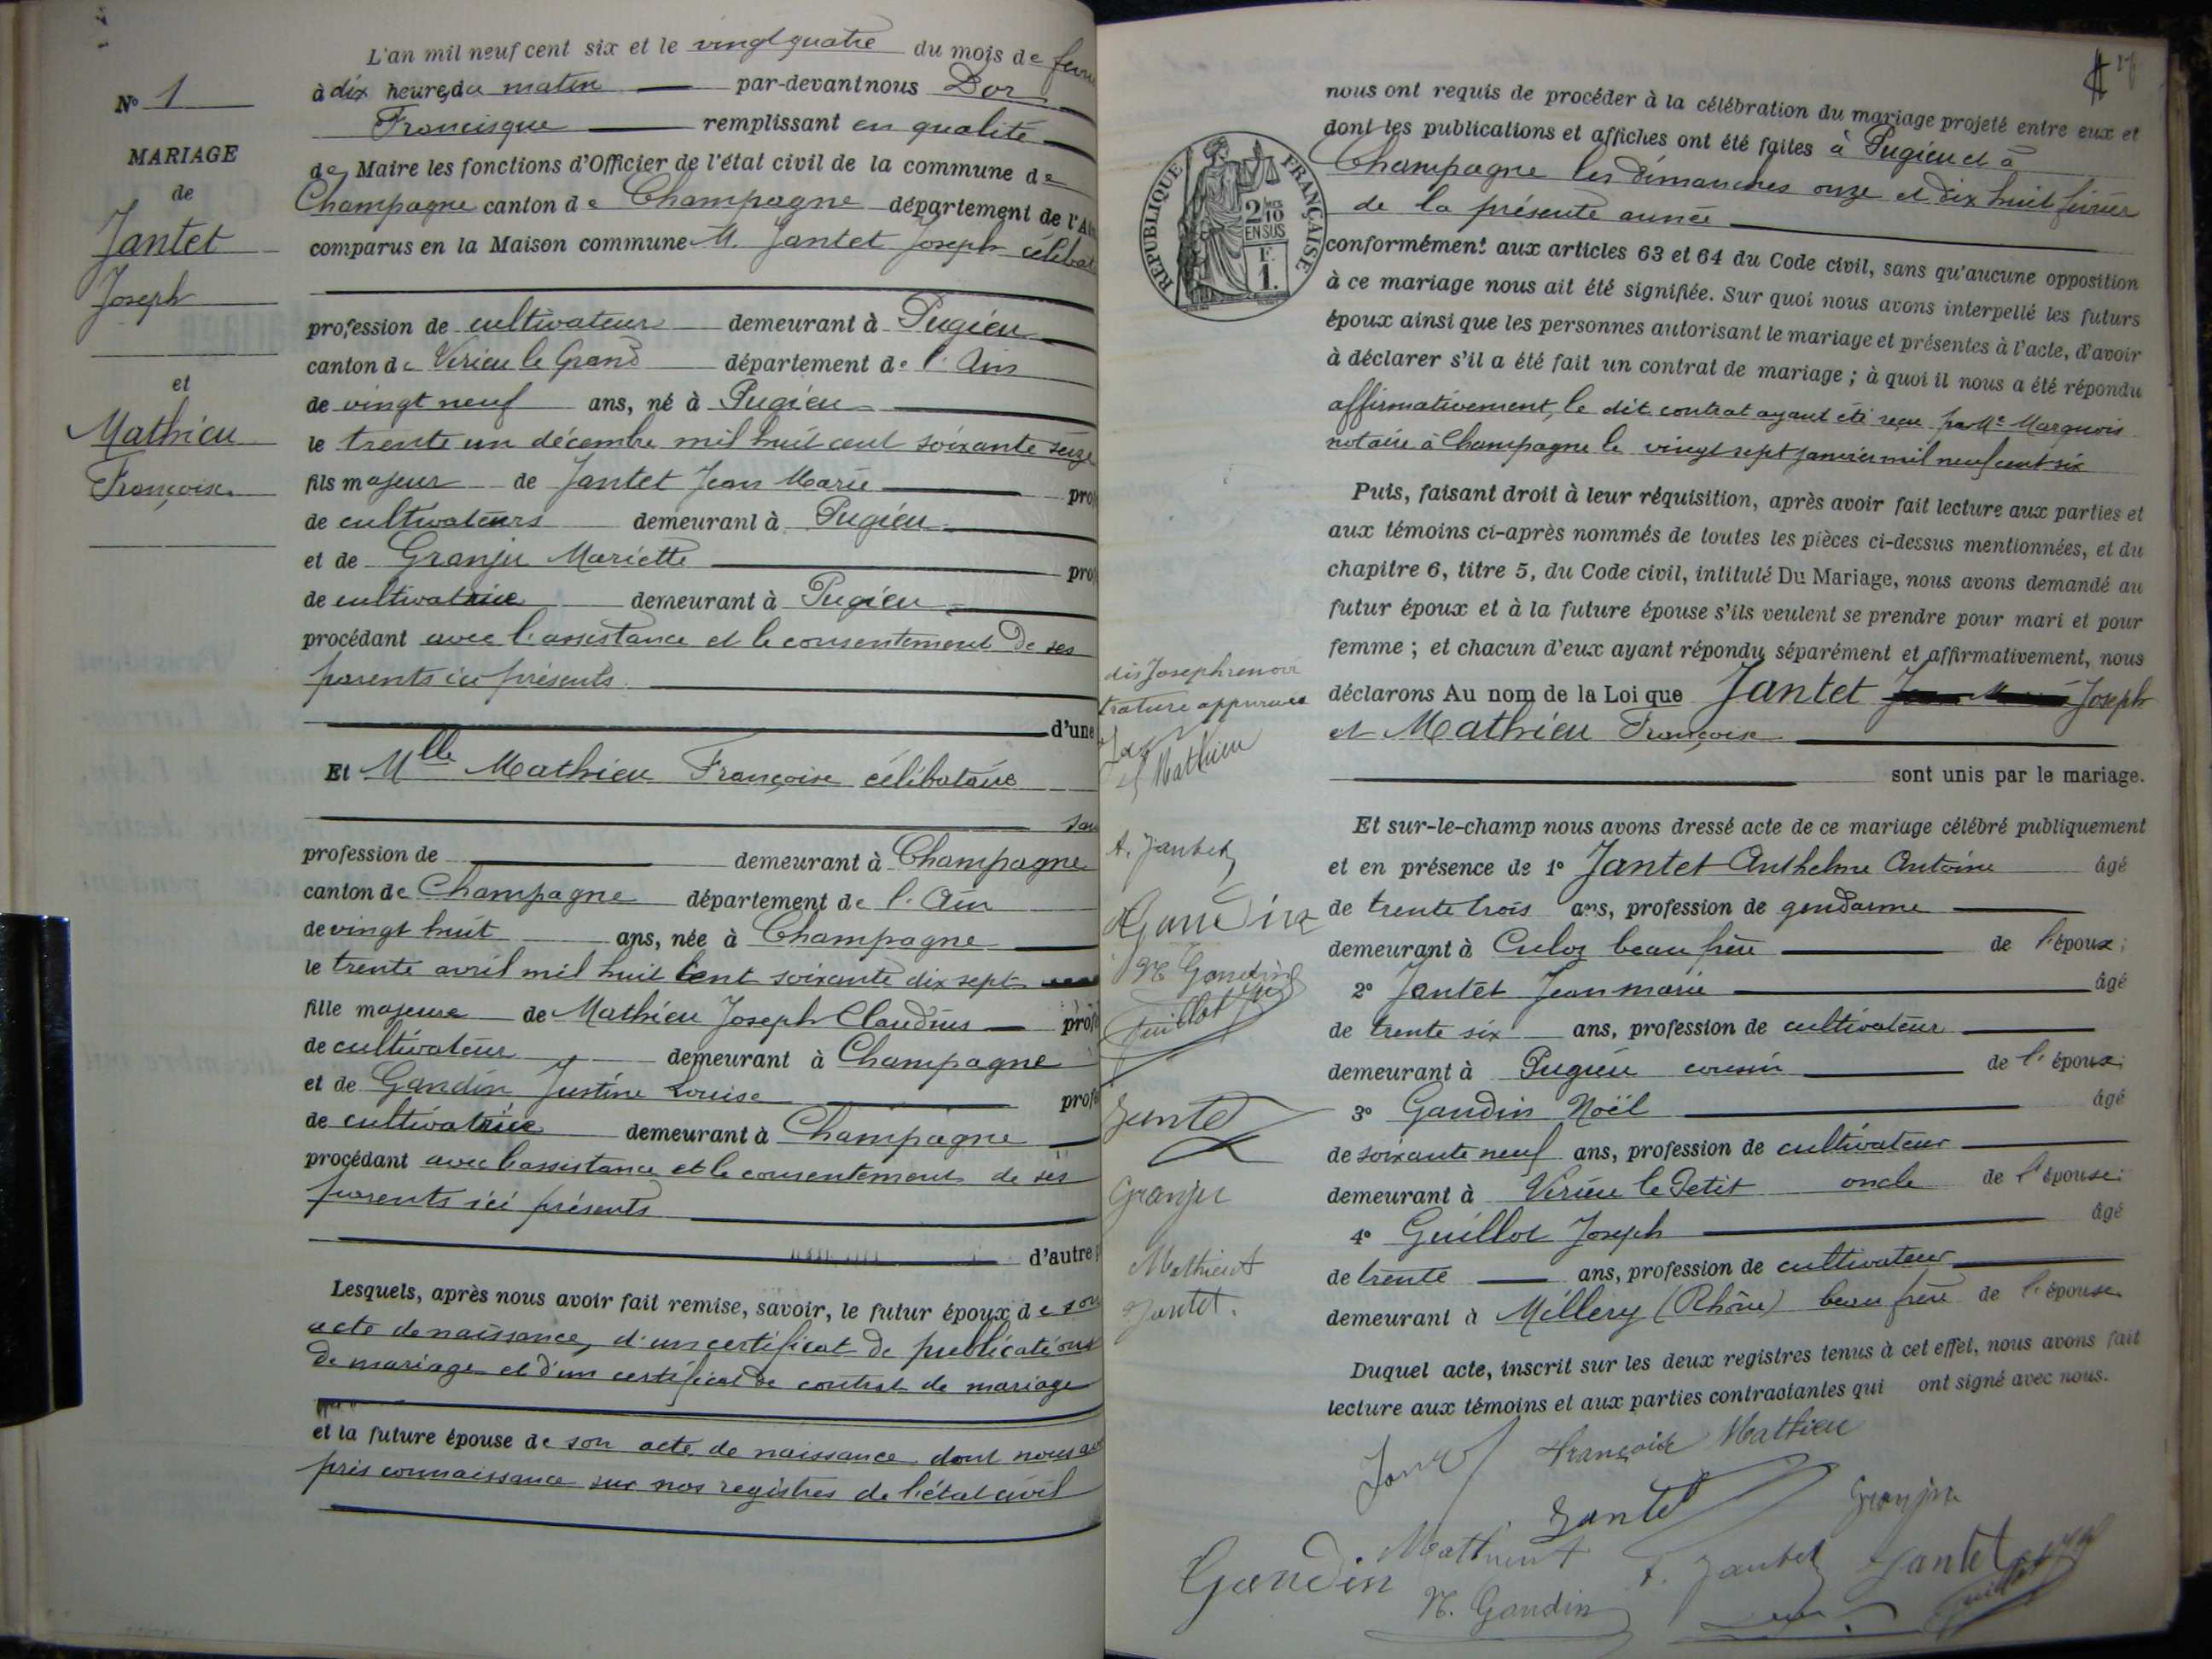 N° 1
MARIAGE
de
Jantet
Joseph
et
Mathieu
Françoise
L'an mil neuf cent six et le vingt quatre du mois de
à dix heures du matin par-devant nous Dor
Francisque remplissant en qualité
de Maire les fonctions d'Officier de l'état civil de la commune de
Champagne canton de Champagne département de l'Ain
comparus en la Maison commune M. Jantet Joseph célibat
profession de cultivateur demeurant à Pugieu
canton de Virieu le Grand département de l'Ain
de vingt neuf ans, né à Pugieu
le trente un décembre mil huit cent soixante seize
fils majeur de Jantet Jean Marie prof
de cultivateurs demeurant à Pugieu
et de Granju Mariette prof
de cultivatrice demeurant à Pugieu
procédant avec l'assistance et le consentement de ses
parents ici présents
d'une
Et Mlle Mathieu Françoise célibataire
san
profession de demeurant à Champagne
canton de Champagne département de l'Ain
de vingt huit ans, née à Champagne
le trente avril mil huit cent soixante dix sept
fille majeure de Mathieu Joseph Claudius prof
de cultivateur demeurant à Champagne
et de Gandin Justine Louise prof
de cultivatrice demeurant à Champagne
procédant avec l'assistance et le consentement de ses
parents ici présents
d'autre p
Lesquels, après nous avoir fait remise, savoir, le futur époux de son
acte de naissance, d'un certificat de publications
de mariage et d'un certificat de contrat de mariage
et la future épouse de son acte de naissance dont nous av
pris connaissance sur nos registres de l'état civil
nous ont requis de procéder à la célébration du mariage projeté entre eux et
dont les publications et affiches ont été faites à Pugieu et à
Champagne les dimanches onze et dix huit février
de la présente année
RÉPUBLIQUE FRANÇAISE
2/10
EN SUS
F.
1.
conformément aux articles 63 et 64 du Code civil, sans qu'aucune opposition
à ce mariage nous ait été signifiée. Sur quoi nous avons interpellé les futurs
époux ainsi que les personnes autorisant le mariage et présentes à l'acte, d'avoir
à déclarer s'il a été fait un contrat de mariage ; à quoi il nous a été répondu
affirmativement, le dit contrat ayant été reçu par Me Marquois
notaire à Champagne le vingt sept janvier mil neuf cent six
Puis, faisant droit à leur réquisition, après avoir fait lecture aux parties et
aux témoins ci-après nommés de toutes les pièces ci-dessus mentionnées, et du
chapitre 6, titre 5, du Code civil, intitulé Du Mariage, nous avons demandé au
futur époux et à la future épouse s'ils veulent se prendre pour mari et pour
femme ; et chacun d'eux ayant répondu séparément et affirmativement, nous
déclarons Au nom de la Loi que Jantet Joseph
et Mathieu Françoise
sont unis par le mariage.
Et sur-le-champ nous avons dressé acte de ce mariage célébré publiquement
et en présence de 1° Jantet Anthelme Antoine âgé
de trente trois ans, profession de gendarme
demeurant à Culoz beau frère de l'époux ;
2° Jantet Jean marie âgé
de trente six ans, profession de cultivateur
demeurant à Pugieu cousin de l'époux ;
3° Gandin Noël âgé
de soixante neuf ans, profession de cultivateur
demeurant à Virieu le Petit oncle de l'épouse ;
4° Guillot Joseph âgé
de trente ans, profession de cultivateur
demeurant à Millery (Rhône) beau frère de l'épouse
Duquel acte, inscrit sur les deux registres tenus à cet effet, nous avons fait
lecture aux témoins et aux parties contractantes qui ont signé avec nous.
approuvée
Mathieu
A. Jantet
Gandin
N. Gandin
Guillot
Jantet
Granju
Mathieu
Jantet
Françoise Mathieu
Jantet
Granju
Mathieu
Gandin
A. Jantet
Jantet
N. Gandin
Guillot